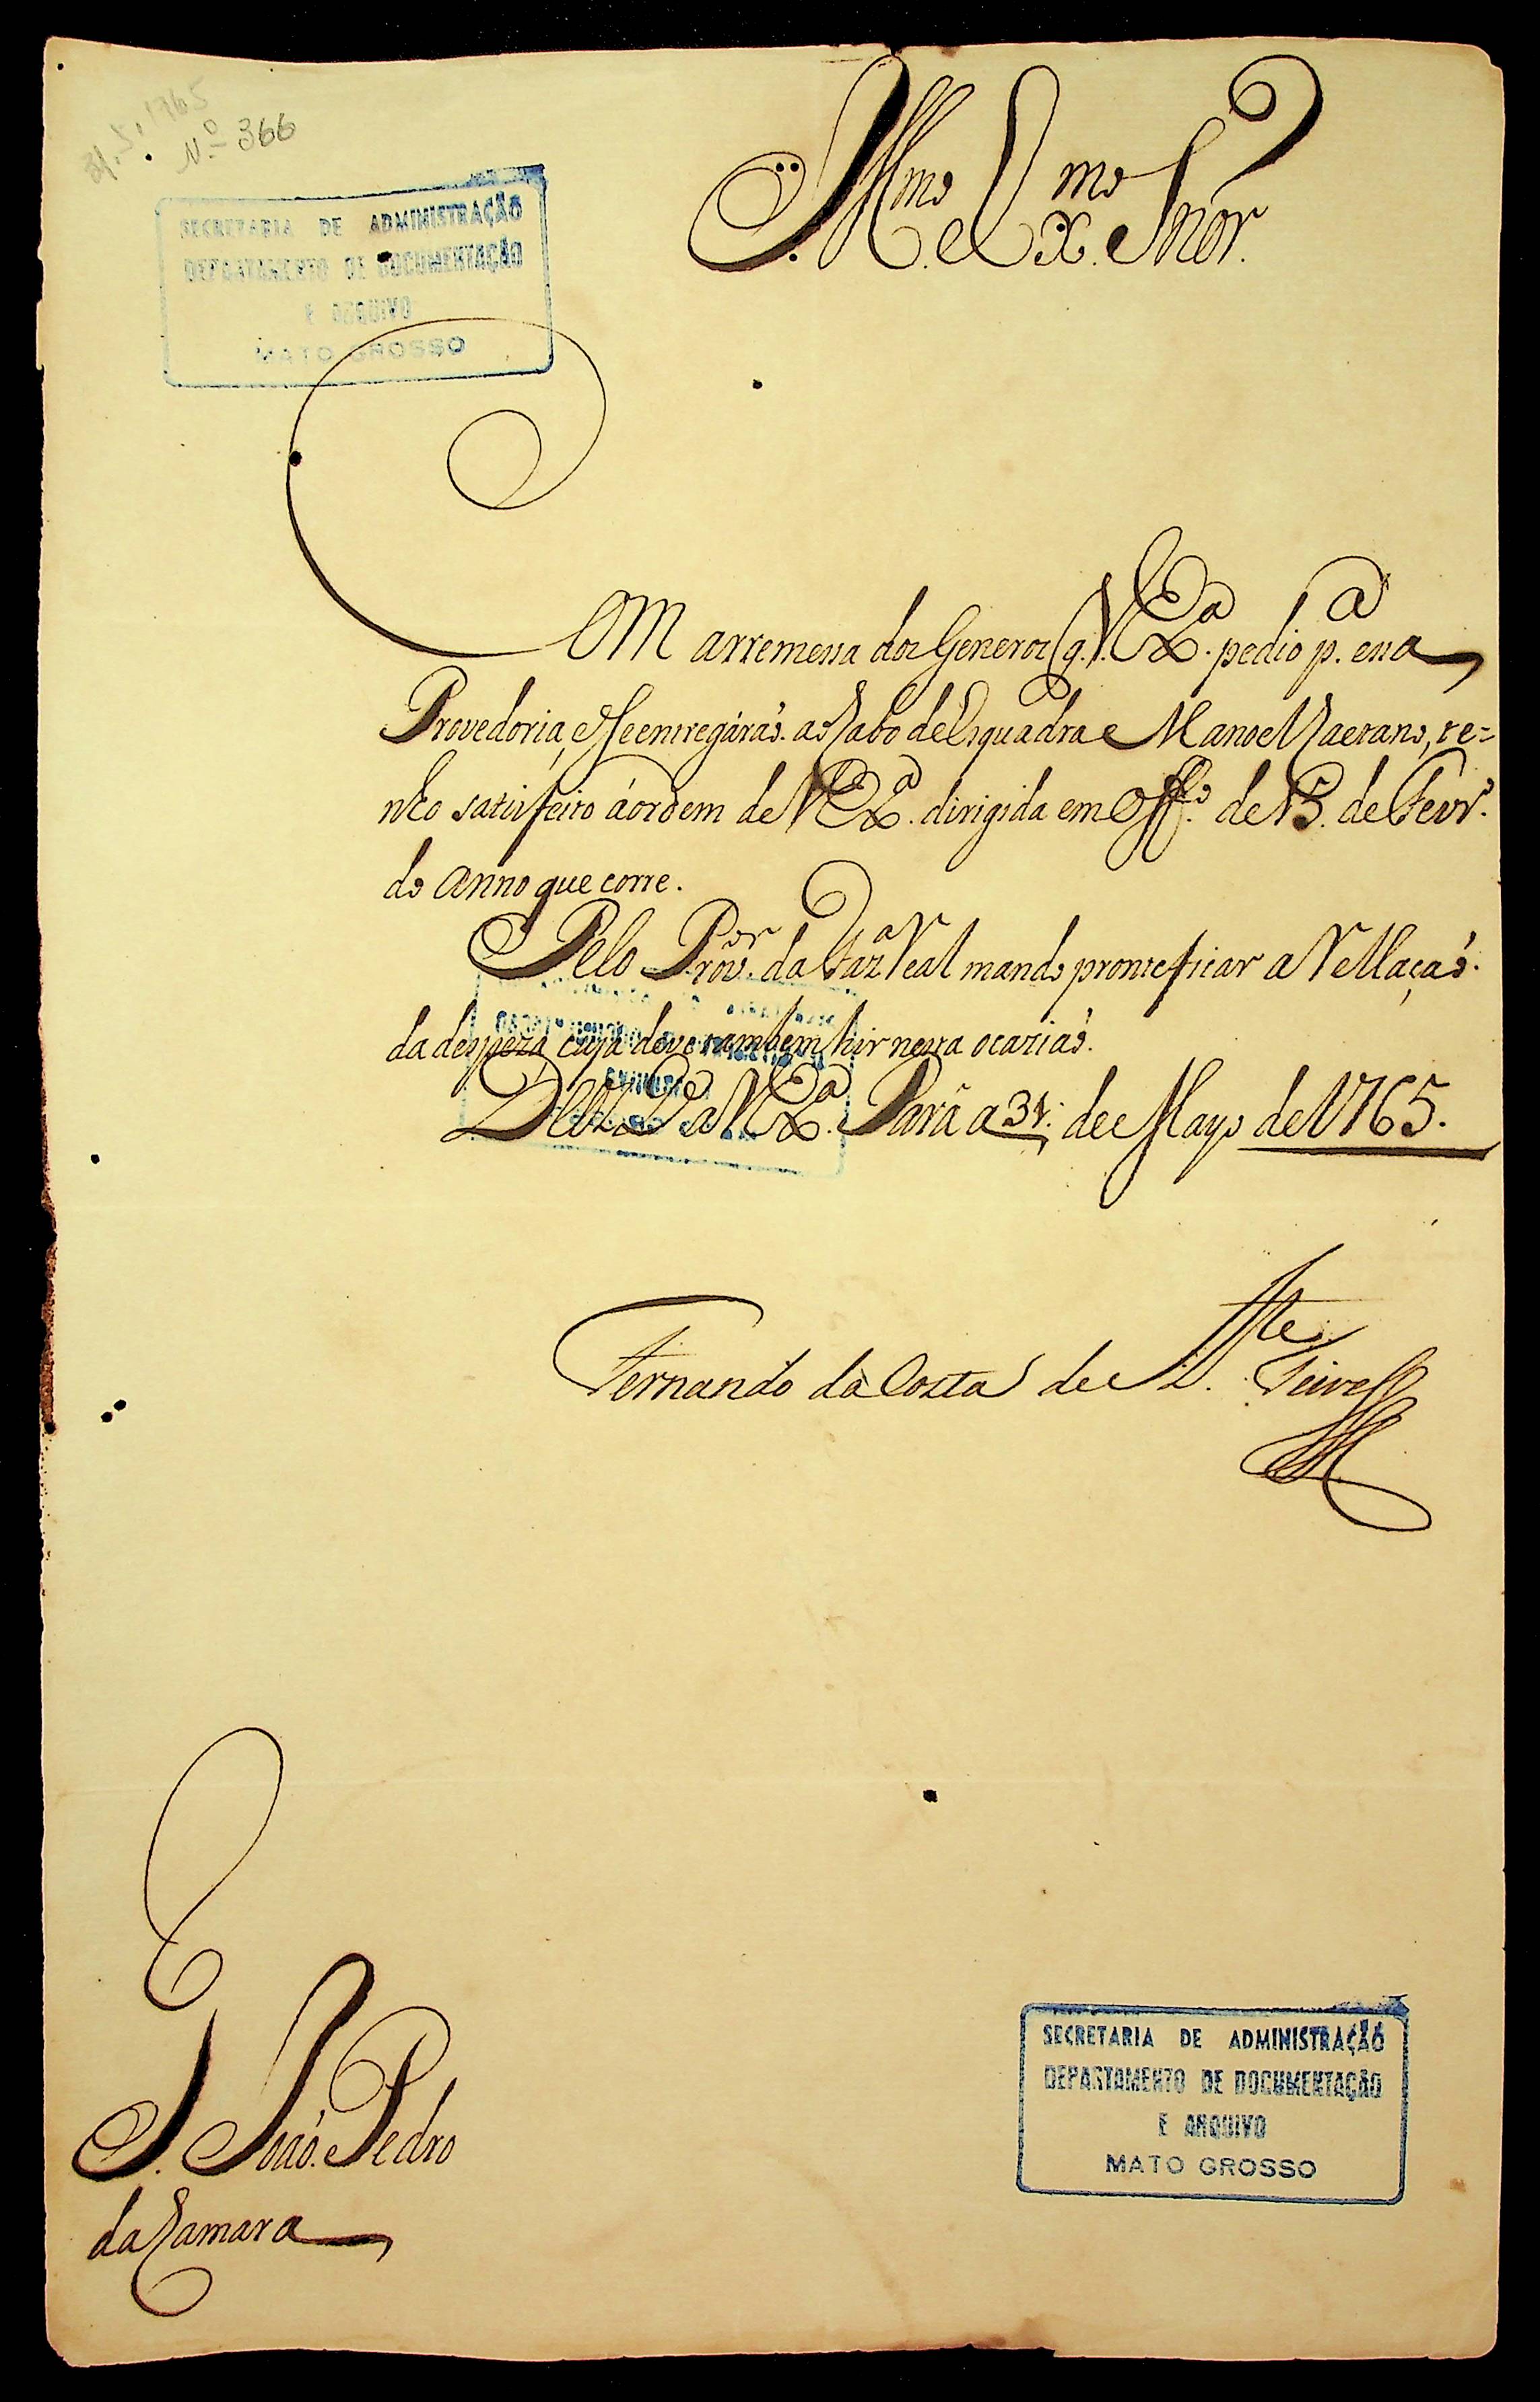 31.5.1765
Nº 366
SECRETARIA DE ADMINISTRAÇÃO
DEPARTAMENTO DE DOCUMENTAÇÃO
E ARQUIVO
MATO GROSSO
Illmo. e Exmo. Snor.
COM arremessa dos Generos q. V. Exa. pedio pa. essa
Provedoria, e se entregárаõ. ao Cabo de Esquadra Manoel Caetano, te=
nho satisfeito á ordem de V. Exa. dirigida em Offo. de 15. de Fevro.
do Anno que corre.
Pelo Provor. da Faza. Real mando pronteficar a Rellaçaõ.
da despeza, cuja deve tambem hir nessa ocaziaõ.
Deos Ge. a V. Exa. Pará a 31. de Mayo de 1765.
Fernando da Costa de Atte. Teive
S. Joaõ. Pedro
da Camara
SECRETARIA DE ADMINISTRAÇÃO
DEPARTAMENTO DE DOCUMENTAÇÃO
E ARQUIVO
MATO GROSSO